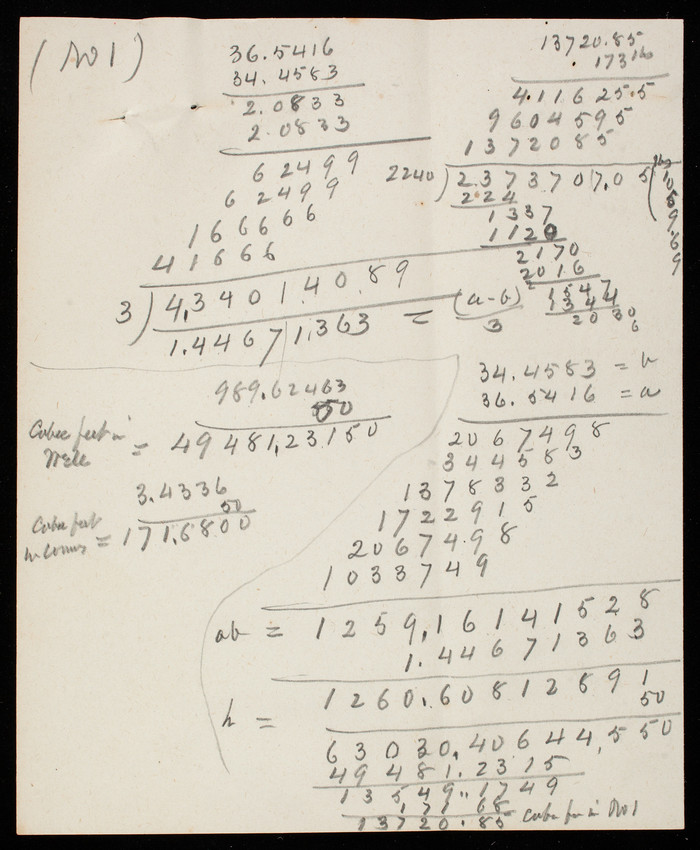 (No 1)
36.5416
34.4583
2.0833
2.0833
62499
62499
166666
41666
3) 4,3401.40.89
1.44671,363 = (a-b)
3
13720.85
173
4.11625.5
9604595
1372085
2240) 2373707.05 (1059.69
224
1337
1120
2170
2016
1547
1344
2030
6
989.62463
50
Cubic feet in
Well = 49481,23150
3.4336
50
Cubic feet
in = 171.6800
34.4583 = b
36.5416 = a
2067498
344583
1378332
1722915
2067498
1033749
ab = 1259,16141528
1.44671363
h = 1260.608128691
50
63030,40644,550
49481.2315
13549.1749
171 68
13720.85 cubic in No 1